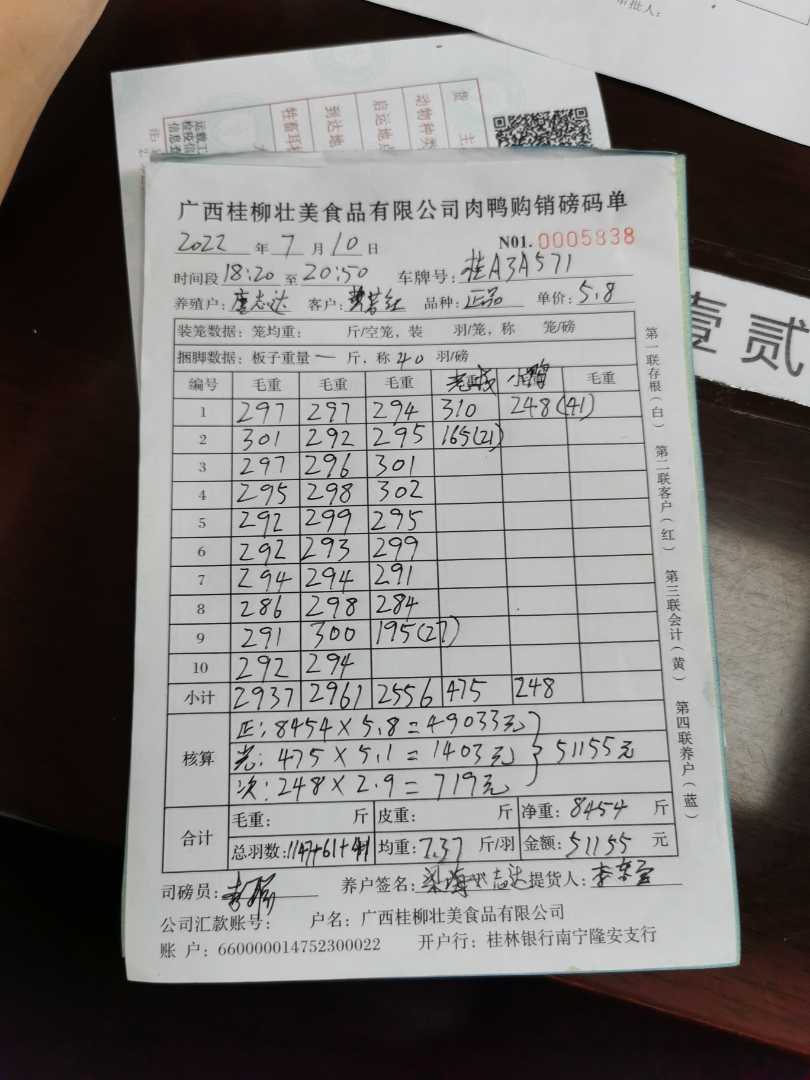 审批人:
货
主
动物种类
启运地点
到达地
牲畜耳标
广西桂柳壮美食品有限公司肉鸭购销磅码单
2022 年 7 月 10 日 N01. 0005838
时间段 18:20 至 20:50 车牌号: 桂A3A571
养殖户: 客户: 品种: 正品 单价: 5.8
装笼数据: 笼均重: 斤/空笼, 装 羽/笼, 称 笼/磅
捆脚数据: 板子重量 一 斤, 称 40 羽/磅
编号 毛重 毛重 毛重 小鸭 毛重
1 297 297 294 310 248(41)
2 301 292 295 165(21)
3 297 296 301
4 295 298 302
5 292 299 295
6 292 293 299
7 294 294 291
8 286 298 284
9 291 300 195(27)
10 292 294
小计 2937 2961 2556 475 248
核算 正: 8454 × 5.8 = 49033元
光: 475 × 5.1 = 1403元 } 51155元
次: 248 × 2.9 = 719元
合计 毛重: 斤 皮重: 斤 净重: 8454 斤
总羽数: 1147+61+41 均重: 7.37 斤/羽 金额: 51155 元
司磅员: 养户签名: 提货人:
公司汇款账号: 户名: 广西桂柳壮美食品有限公司
账 户: 660000014752300022 开户行: 桂林银行南宁隆安支行
第一联存根(白) 第二联客户(红) 第三联会计(黄) 第四联养户(蓝)
壹贰